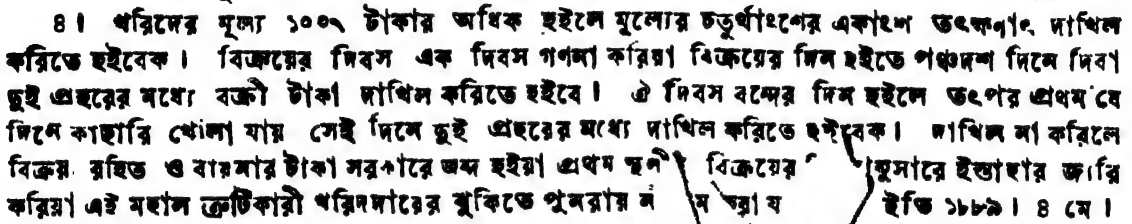 ৪। খরিদের মূল্য ১০০৲ টাকার অধিক হইলে মূল্যের চতুর্থাংশের একাংশ তৎক্ষণাৎ দাখিল
করিতে হইবেক। বিক্রয়ের দিবস এক দিবস গণনা করিয়া বিক্রয়ের দিন হইতে পঞ্চদশ দিনে দিবা
দুই প্রহরের মধ্যে বক্রী টাকা দাখিল করিতে হইবে। ঐ দিবস বন্দের দিন হইলে তৎপর প্রথম যে
দিনে কাছারি খোলা যায় সেই দিনে দুই প্রহরের মধ্যে দাখিল করিতে হইবেক। দাখিল না করিলে
বিক্রয় রহিত ও বায়নার টাকা সরকারে জব্দ হইয়া প্রথম বিক্রয়ের ইস্তাহার জারি
করিয়া এই মহাল ত্রুটিকারী খরিদদারের ঝুকিতে পুনরায় ইতি ১৮৮৯। ৪ মে।